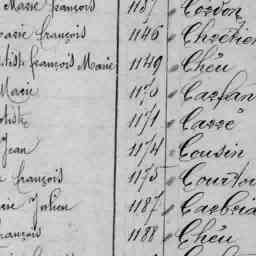 Marie François 1137 Cordon
Marie François 1146 Chrétien
tiste François Marie 1149 Chéu
Marie 1170 Carfan
tiste 1171 Carré
Jean 1174 Cousin
François 1175 Courto
rie Julien 1187 Carbria
rançois 1188 Chéu